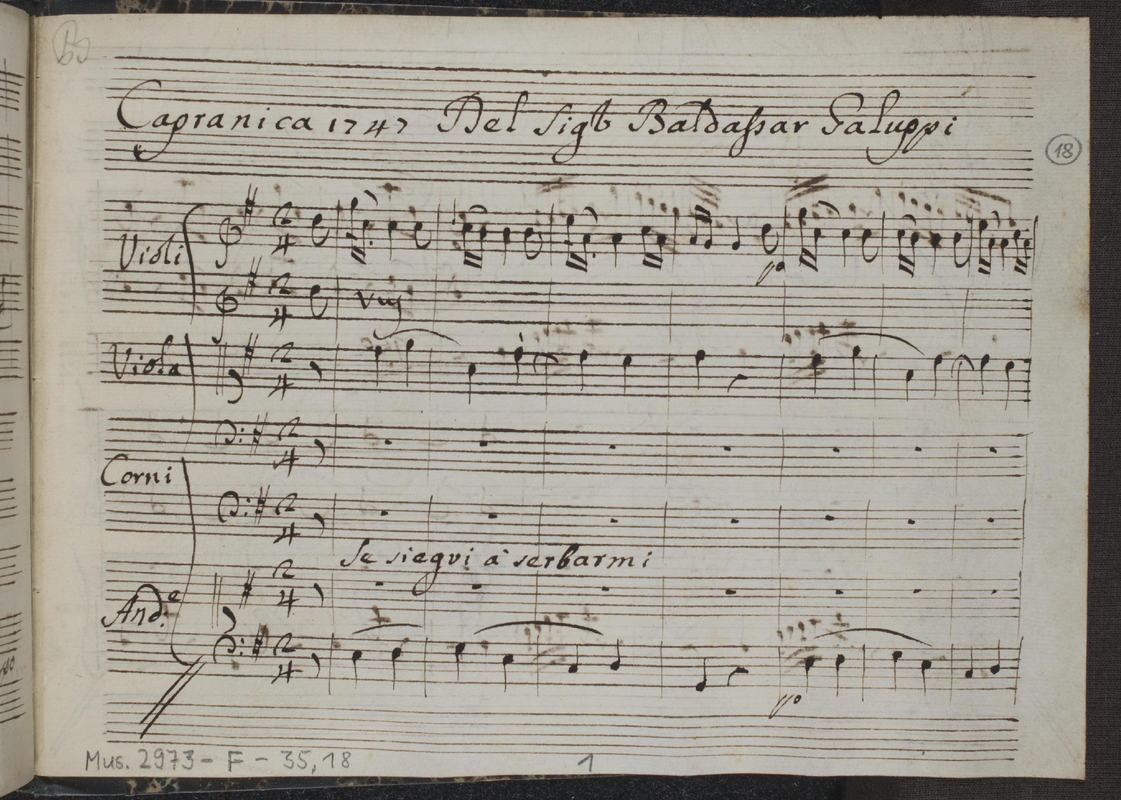 Capranica 1747 Del Sigr Baldaßar Galuppi
18
Violi
Viola
Corni
Se siegui à serbarmi
And.e
po
po
Mus. 2973 - F - 35,18
1